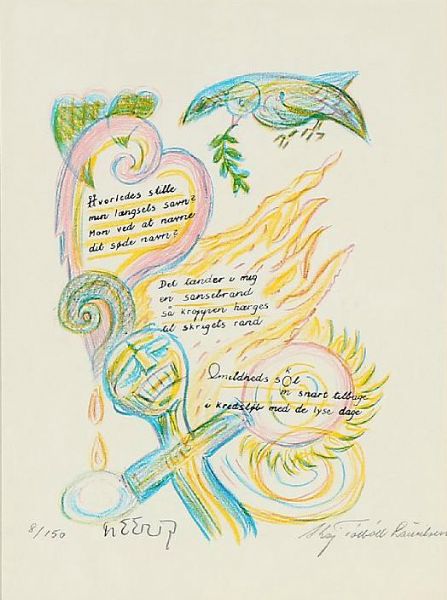 Hvorledes stille
min længsels savn?
Mon ved at navne
dit søde navn?
Det tænder i mig
en sansebrand
så kroppen hærges
til skrigets rand
Omildheds sol kom snart tilbage
i kredsløb med de lyse dage
8/150